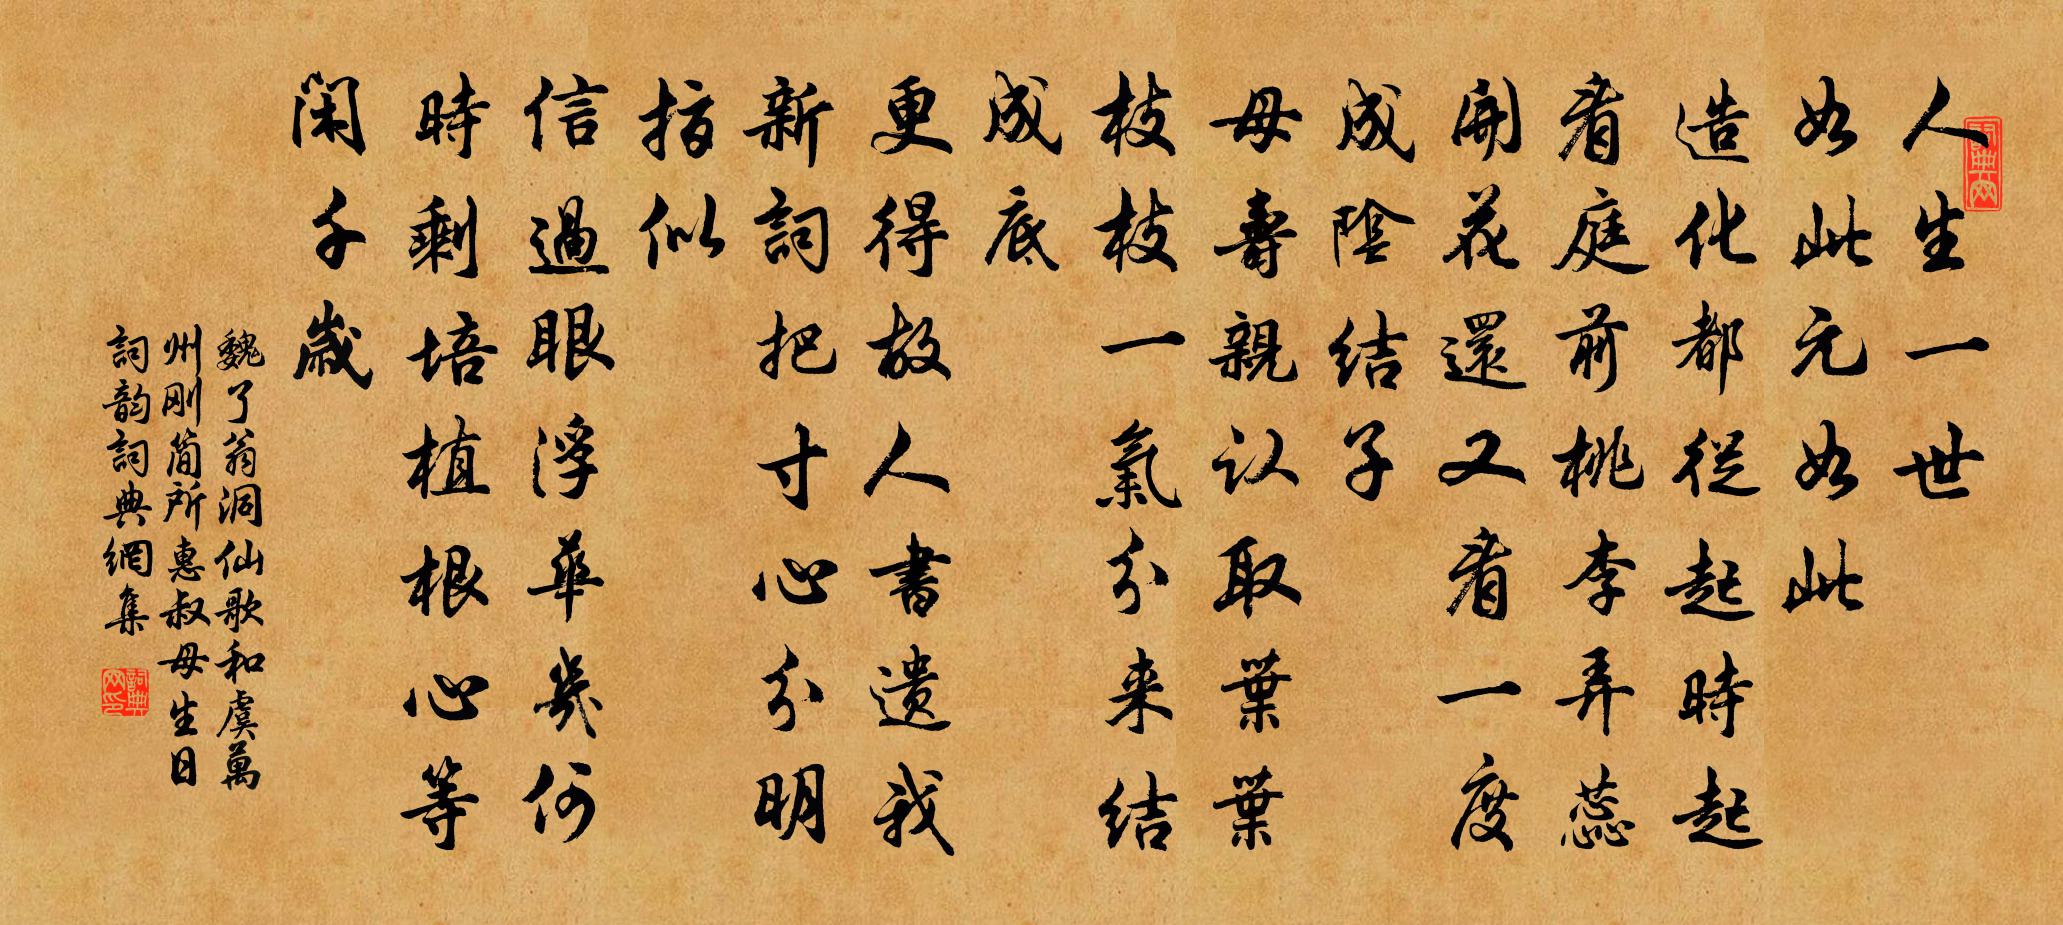 人生一世
如此元如此
造化都從起時起
看庭前桃李弄蕊
開花還又看一度
成陰結子
母壽親认取葉葉
枝枝一氣分来結
成底
更得故人書遺我
新詞把寸心分明
指似
信過眼浮華幾何
時剩培植根心等
閑千歲
魏了翁洞仙歌和虞萬
州刚简所惠叔母生日
詞韵詞典網集
詞典網
詞典网印